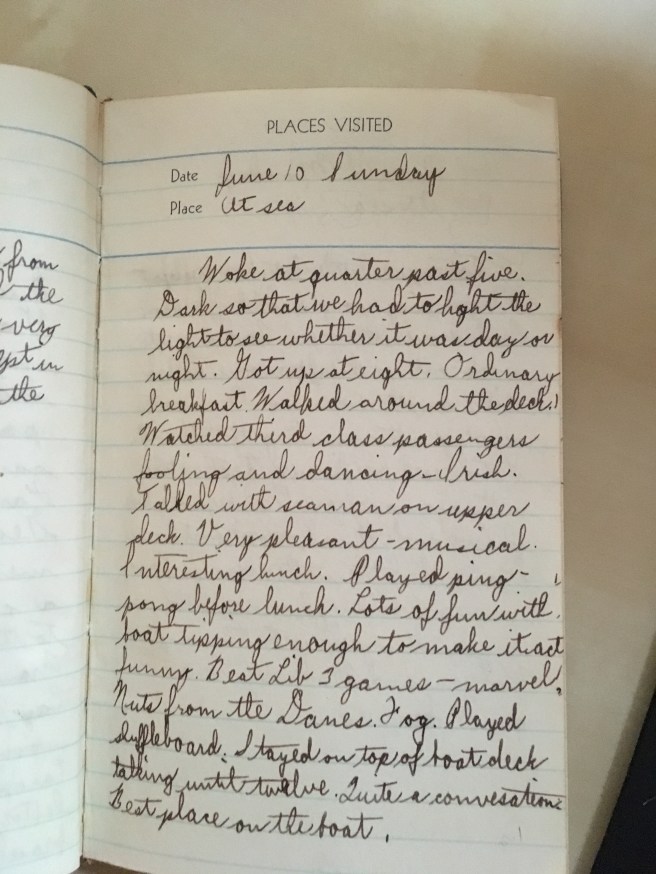 PLACES VISITED
Date June 10 Sunday
Place At sea
from
the
very
in
the
Woke at quarter past five.
Dark so that we had to light the
light to see whether it was day or
night. Got up at eight. Ordinary
breakfast. Walked around the deck.
Watched third class passengers
fooling and dancing - Irish.
Talked with seaman on upper
deck. Very pleasant - musical.
Interesting lunch. Played ping-
pong before lunch. Lots of fun with
boat tipping enough to make it act
funny. Beat Lib 3 games - marvel.
Nuts from the Danes. Fog. Played
shuffleboard. Stayed on top of boat deck
talking until twelve. Quite a convesation.
Best place on the boat.